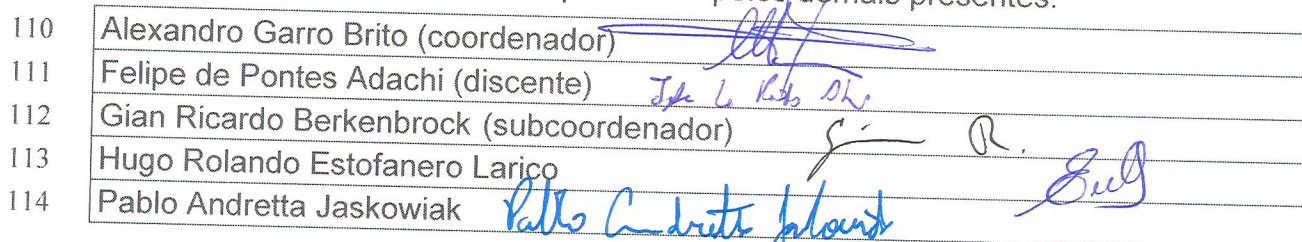 demais presentes.
110 Alexandro Garro Brito (coordenador)
111 Felipe de Pontes Adachi (discente)
112 Gian Ricardo Berkenbrock (subcoordenador)
113 Hugo Rolando Estofanero Larico
114 Pablo Andretta Jaskowiak Pablo Andretta Jaskowiak